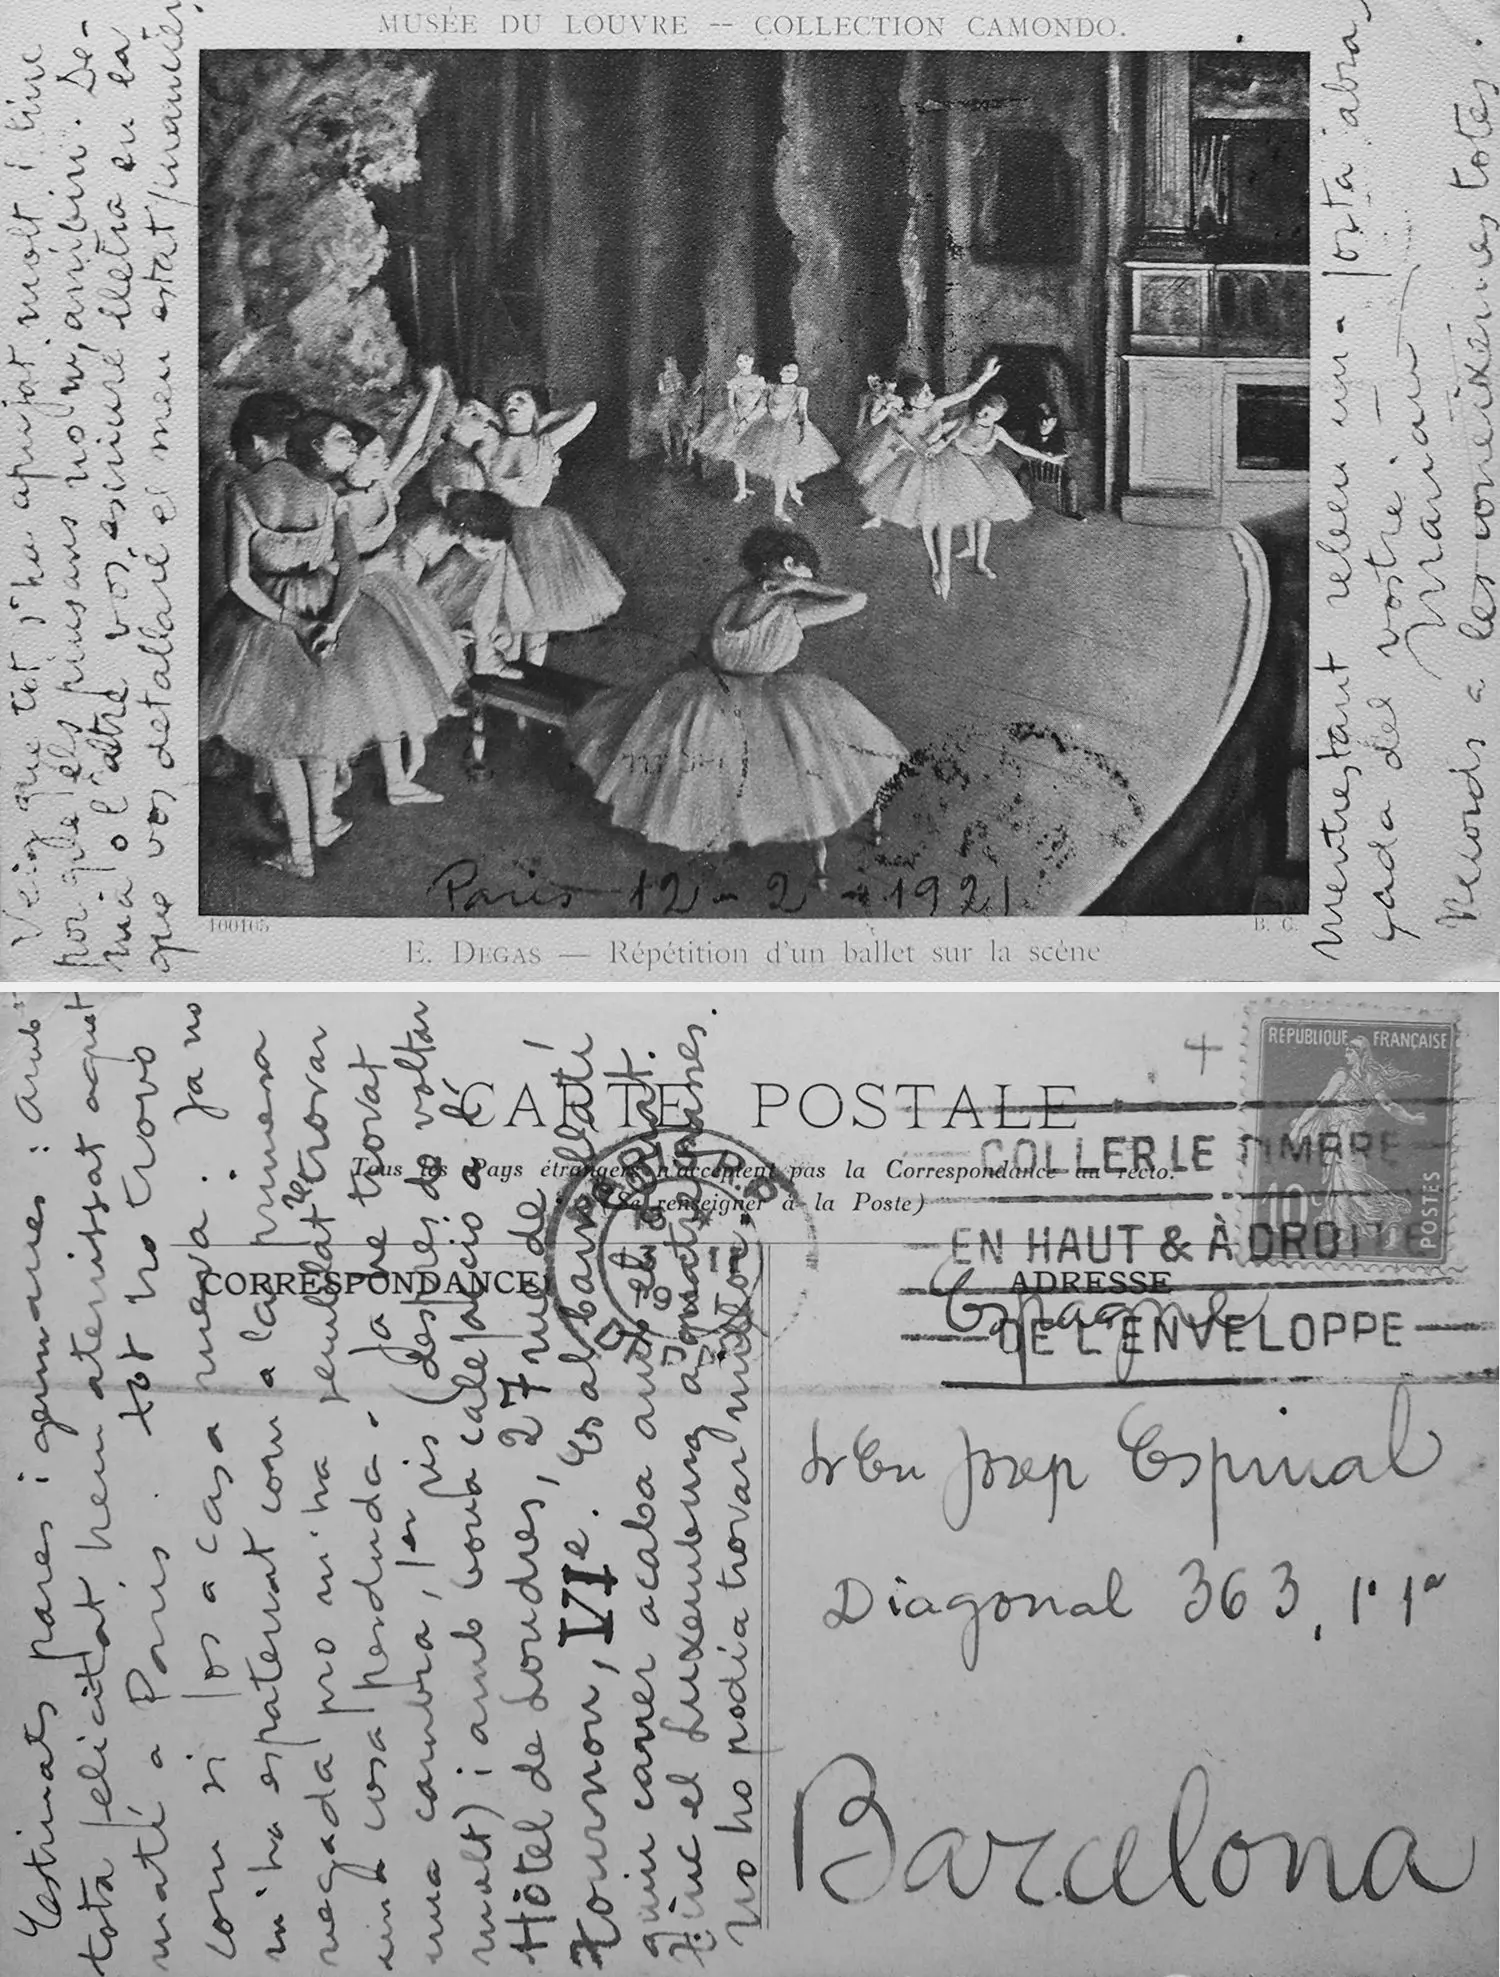 MUSÉE DU LOUVRE -- COLLECTION CAMONDO.
Veig que tot s'ha apujat molt i tinc
por que els pinsans no m'arribin. De-
mà o l'altre vos escriuré lletra en la
que vos detallaré el meu estat financier,
Paris 12 - 2 - 1921
100105
B. C.
E. DEGAS — Répétition d'un ballet sur la scène
mentrestant rebeu una forta abra-
çada del vostre
Marian
Records a les coneixences totes.
CARTE POSTALE
Tous les Pays étrangers n'acceptent pas la Correspondance au recto.
(Se renseigner à la Poste)
CORRESPONDANCE
ADRESSE
REPUBLIQUE FRANÇAISE
10c
POSTES
COLLER LE TIMBRE
EN HAUT & À DROITE
DE L'ENVELOPPE
Estimats pares i germanes: amb
tota felicitat hem aterrissat aquet
matí a Paris. tot ho trovo
com si fos a casa meva. Ja no
m'ha espaterrat com a la primera
vegada pro m'ha semblat retrovar
una cosa perduda. Ja he trovat
una cambra, 1er pis (després de voltar
molt) i amb bona calefacció a
Hôtel de Londres, 27 rue de
Tournon, VIe. Es al barri llatí
quin carrer acaba amb el Senat.
Tinc el Luxembourg a quatre passes.
No ho podia trovar millor.
Espagne
Sr En Josep Espinal
Diagonal 363, 1er 1a
Barcelona